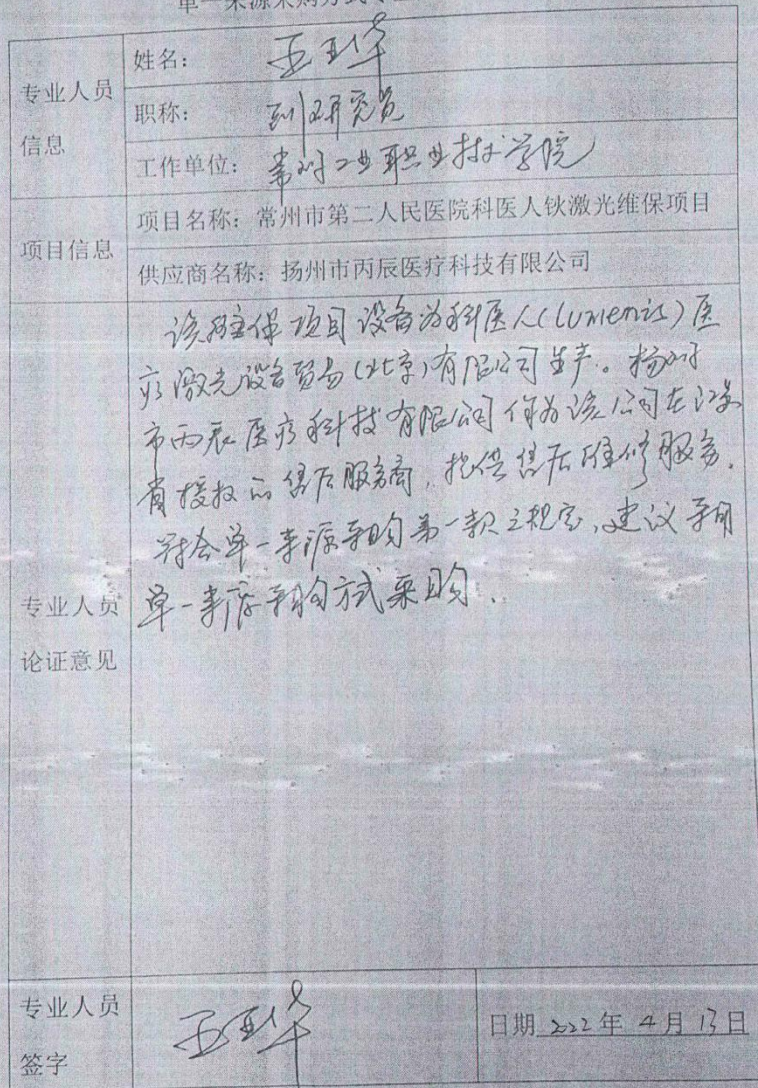 单一来源采购方式专
专业人员
信息
姓名：
职称：副研究员
工作单位：常州工业职业技术学院
项目信息
项目名称：常州市第二人民医院科医人钬激光维保项目
供应商名称：扬州市丙辰医疗科技有限公司
专业人员
论证意见
该维保项目设备为科医人（lumenis）医
疗激光设备贸易（北京）有限公司生产。扬州
市丙辰医疗科技有限公司作为该公司在江苏
省授权的售后服务商，提供售后维修服务。
符合单一来源采购第一款之规定，建议采用
单一来源采购方式采购.
专业人员
签字
日期 2022年 4月 13日